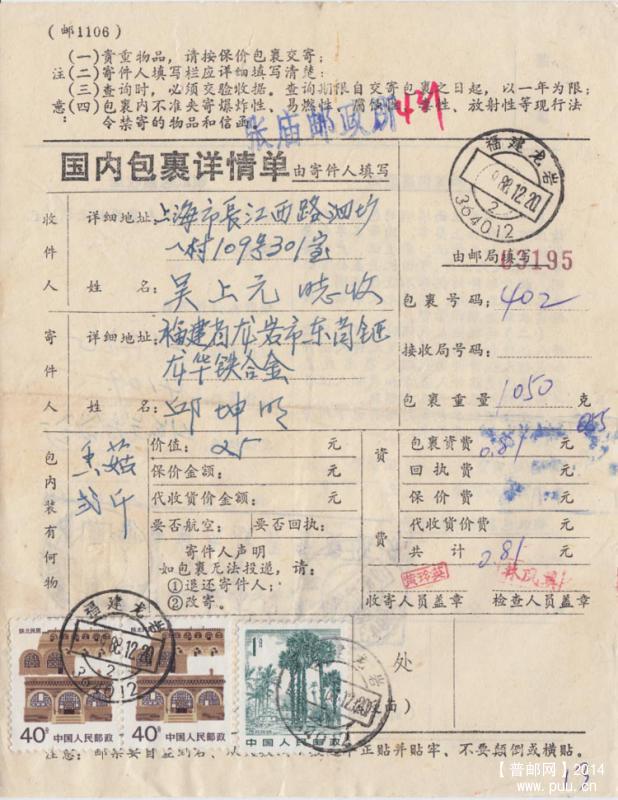 (邮1106)
(一)贵重物品，请按保价包裹交寄；
注(二)寄件人填写栏应详细填写清楚；
(三)查询时，必须交验收据。查询期限自交寄包裹之日起，以一年为限；
意(四)包裹内不准夹寄爆炸性、易燃性、腐蚀性、毒性、放射性等现行法
令禁寄的物品和信函。
张庙邮政
431
国内包裹详情单 由寄件人填写
福建龙岩
88.12.20
2
364012
收件人
详细地址：上海市長江西路泗圹
一村109号301室
姓名：吴上元 收
寄件人
详细地址：福建省龙岩市东肖
龙华铁合金
姓名：邱坤明
由邮局填写
03195
包裹号码：402
接收局号码：
包裹重量 1050 克
包内装有何物
香菇
价值：25 元
保价金额： 元
代收货价金额： 元
要否航空： 要否回执：
寄件人声明
如包裹无法投递，请：
①退还寄件人；
②改寄。
资费
包裹资费 0.81 元
回执费 元
保价费 元
代收货价费 元
共计 0.81 元
黄玲英
收寄人员盖章 检查人员盖章
福建龙岩
88.12.20
2
364012
陕北民居
40分
中国人民邮政
40分
中国人民邮政
1
中国人民邮政
处
面)
注意：
正贴并贴牢、不要颠倒或横贴。
13
【普邮网】2014
www.puu.cn